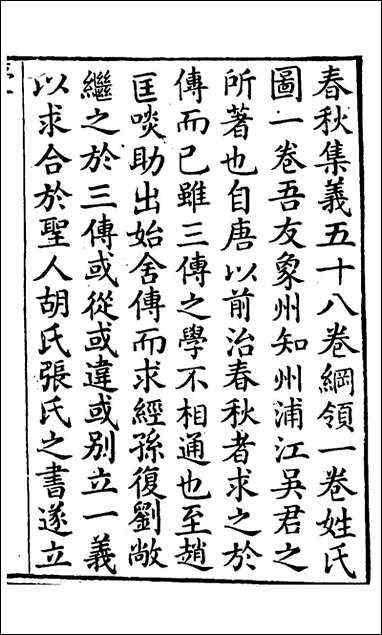 春秋集義五十八卷綱領一卷姓氏
圖一卷吾友象州知州浦江吳君之
所著也自唐以前治春秋者求之於
傳而已雖三傳之學不相通也至趙
匡啖助出始舍傳而求經孫復劉敞
繼之於三傳或從或違或别立一義
以求合於聖人胡氏張氏之書遂立